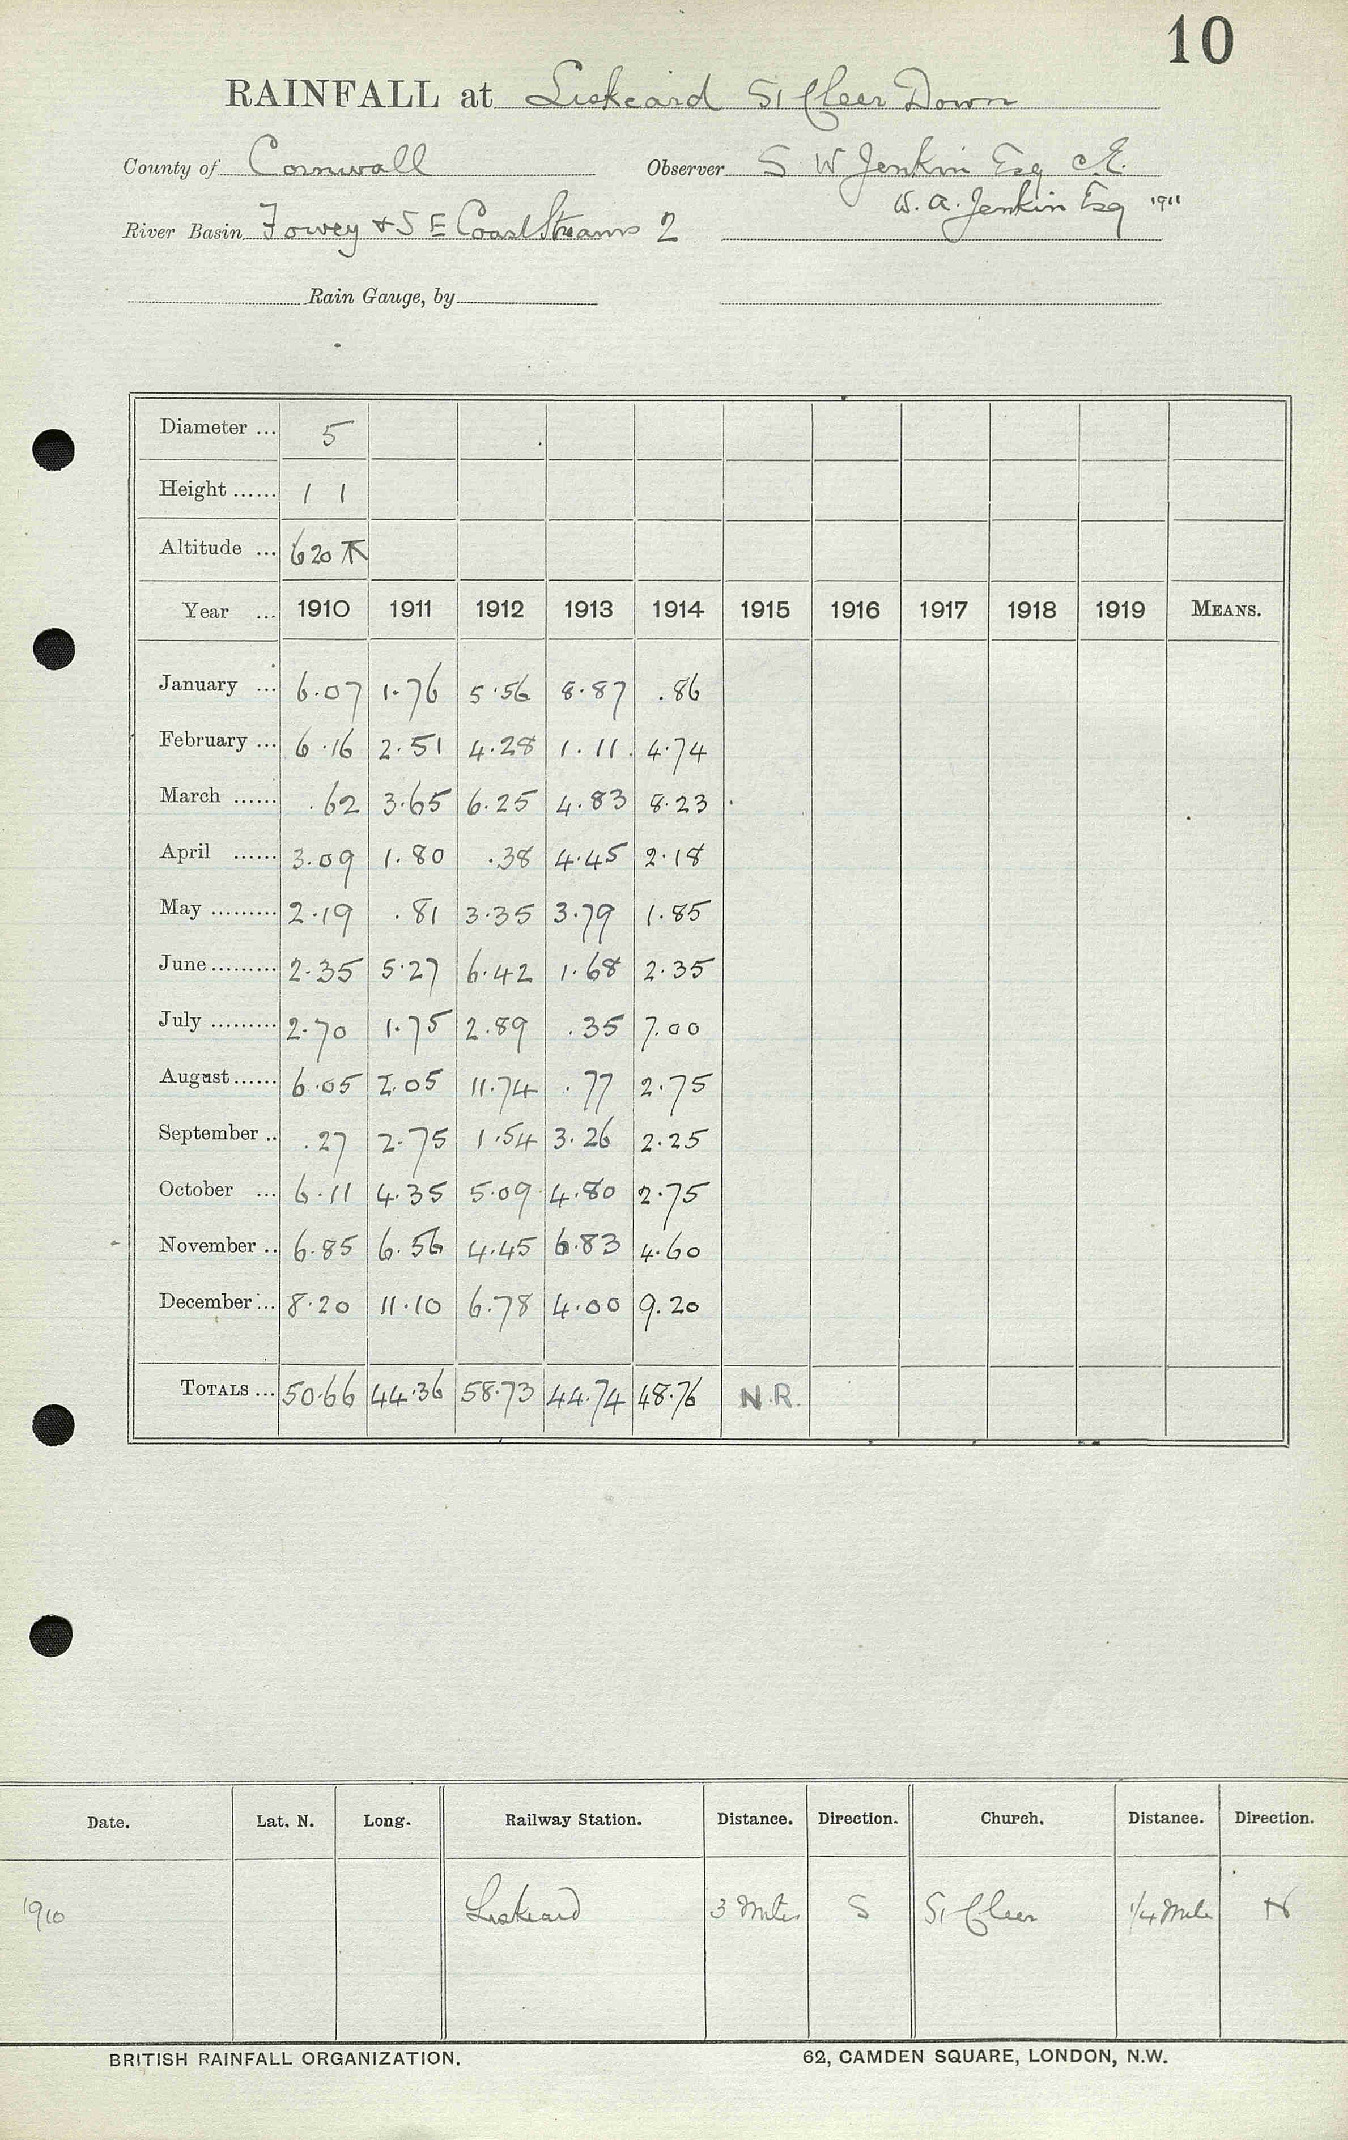 10
RAINFALL at Liskeard St Cleer Down
County of Cornwall Observer S W Jenkin Esq C.E.
W. A. Jenkin Esq 1911
River Basin Fowey & S E Coast Streams 2
Rain Gauge, by
Diameter ... 5
Height ...... 1 1
Altitude ... 620
Year ... 1910 1911 1912 1913 1914 1915 1916 1917 1918 1919 MEANS.
January ... 6.07 1.76 5.56 8.87 .86
February ... 6.16 2.51 4.28 1.11 4.74
March ...... .62 3.65 6.25 4.83 8.23
April ...... 3.09 1.80 .38 4.45 2.18
May ......... 2.19 .81 3.35 3.79 1.85
June ......... 2.35 5.27 6.42 1.68 2.35
July ......... 2.70 1.75 2.89 .35 7.00
August ...... 6.05 2.05 11.74 .77 2.75
September .. .27 2.75 1.54 3.26 2.25
October ... 6.11 4.35 5.09 4.80 2.75
November .. 6.85 6.56 4.45 6.83 4.60
December ... 8.20 11.10 6.78 4.00 9.20
TOTALS ... 50.66 44.36 58.73 44.74 48.76 N.R.
Date. Lat. N. Long. Railway Station. Distance. Direction. Church. Distance. Direction.
1910 Liskeard 3 Miles S St Cleer 1/4 Mile N
BRITISH RAINFALL ORGANIZATION. 62, CAMDEN SQUARE, LONDON, N.W.